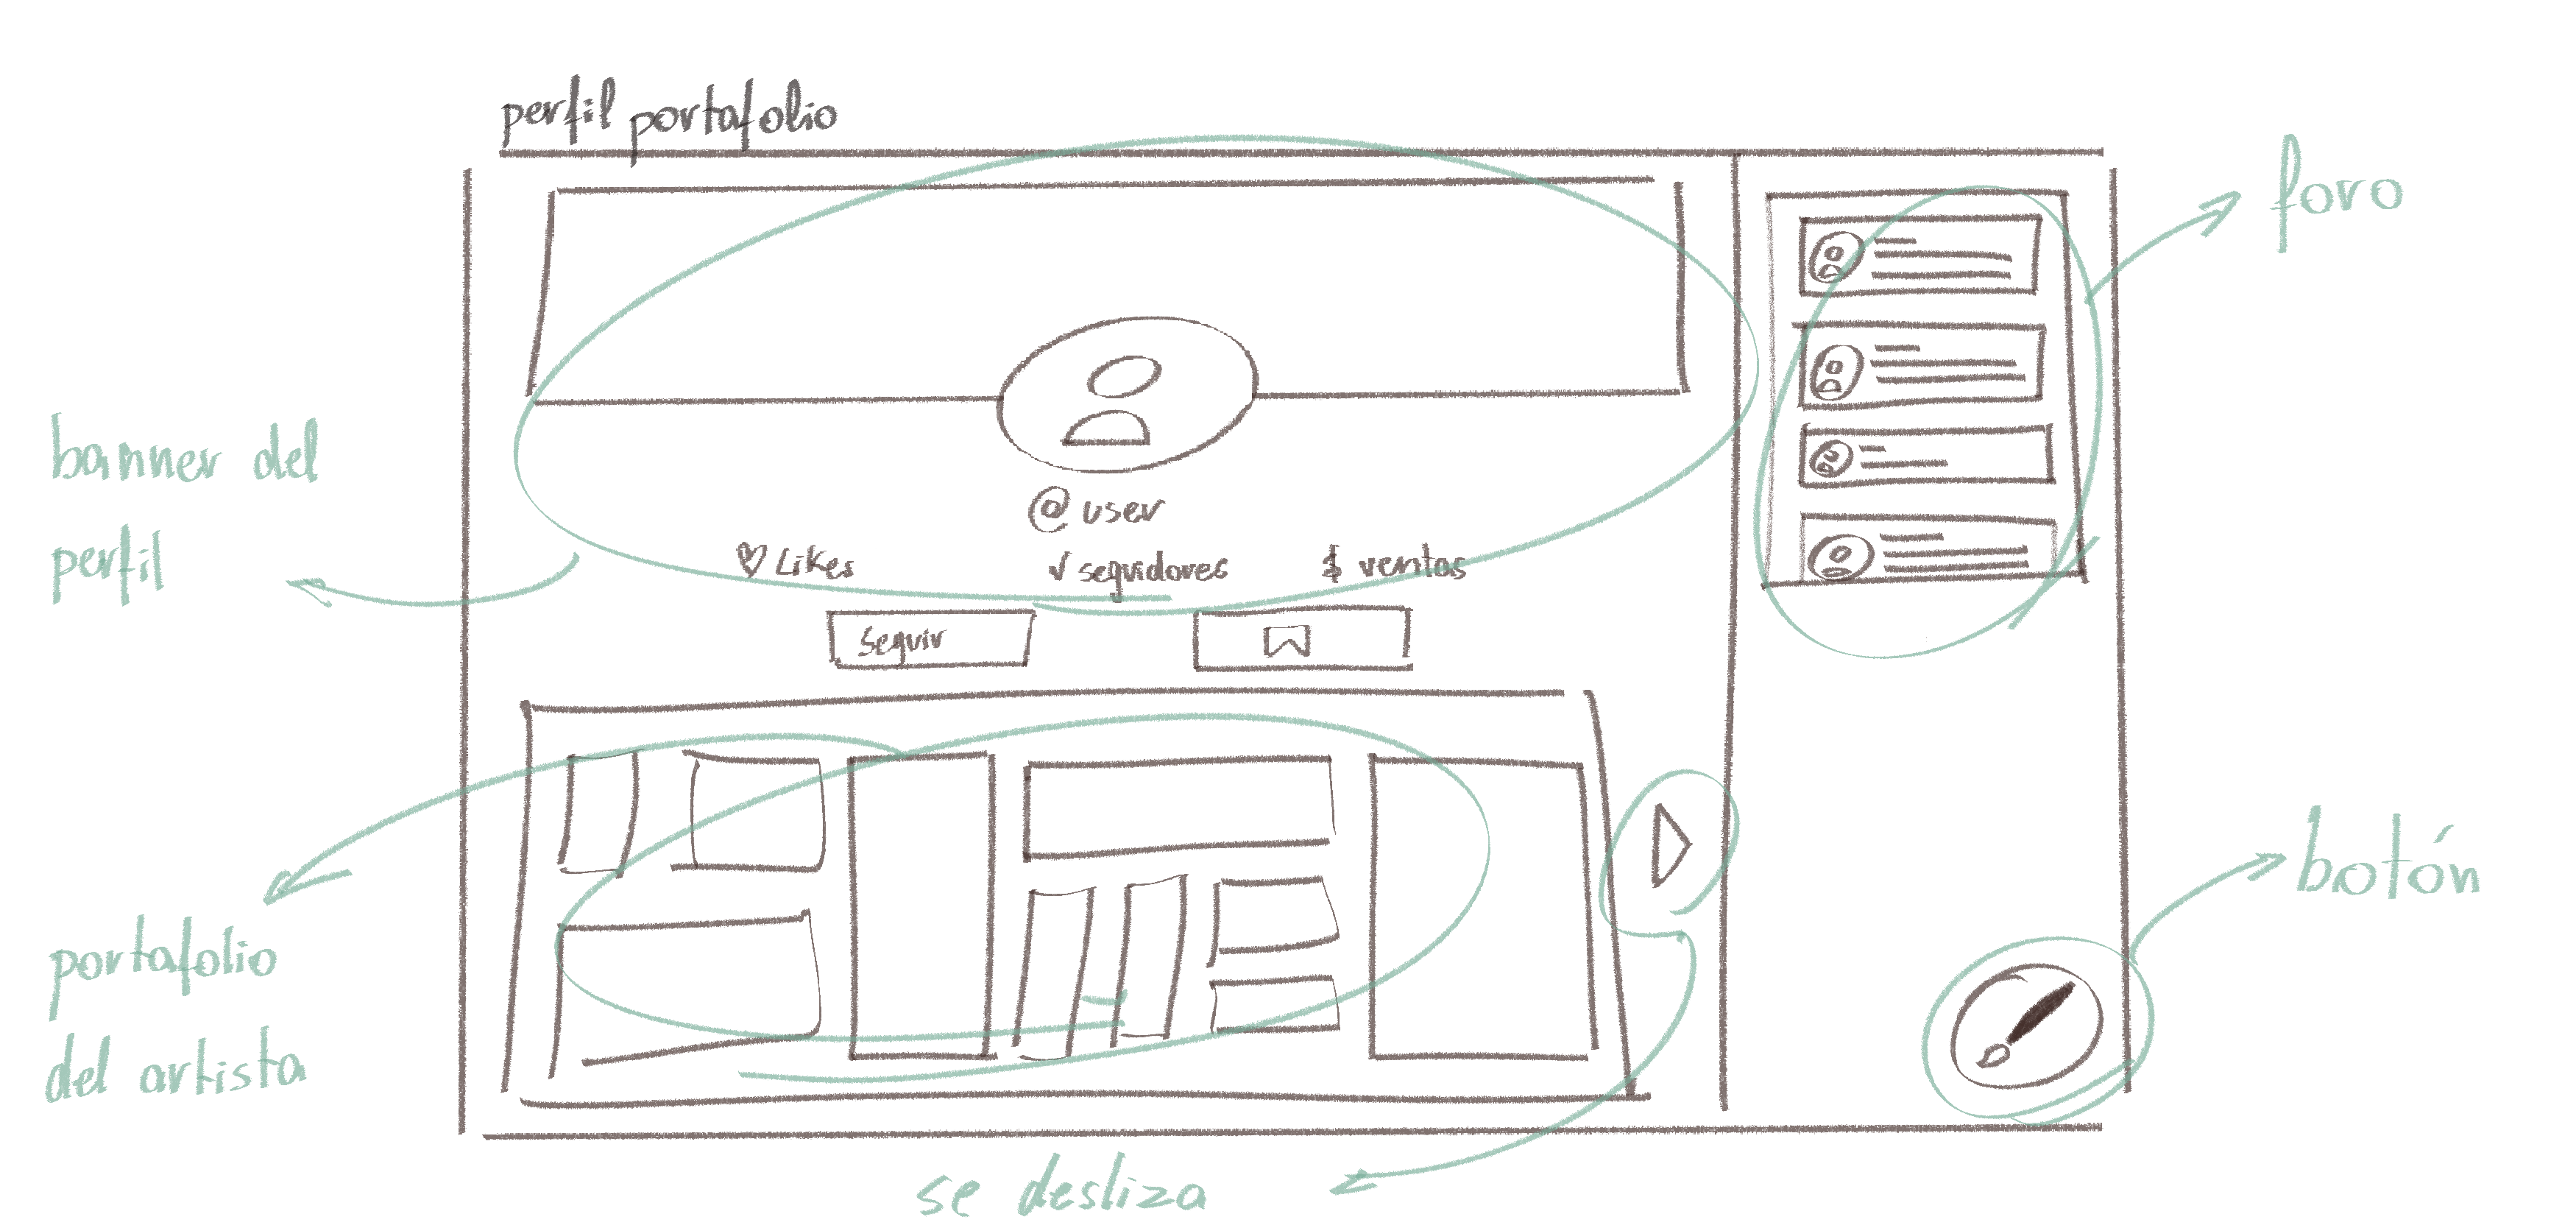 perfil portafolio
foro
banner del
perfil
@user
Likes
seguidores
$ ventas
seguir
botón
portafolio
del artista
se desliza